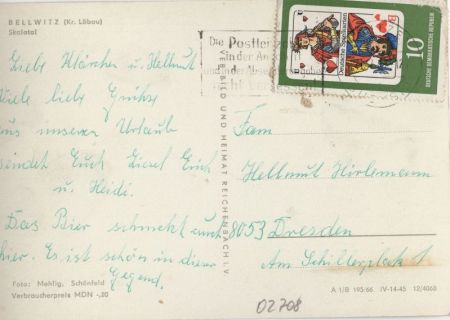 BELLWITZ (Kr. Löbau)
Skalatal
Liebe Klärchen u. Hellmut
Viele liebe Grüße
aus unserem Urlaub
sendet Euch Liesel Erich
u. Heidi.
Das Bier schmeckt auch
hier. Es ist schön in dieser
Gegend.
Foto: Mehlig, Schönfeld
Verbraucherpreis MDN -,20
VERLAG BILD UND HEIMAT REICHENBACH i. V.
Die Postlei
in der An
und in der Abse
Deutsche Spielkarten
10
DEUTSCHE DEMOKRATISCHE REPUBLIK
Fam
Hellmut Hirlemann
8053 Dresden
Am Schillerplatz 1
A 1/B 195/66 IV-14-45 12/4068
02708